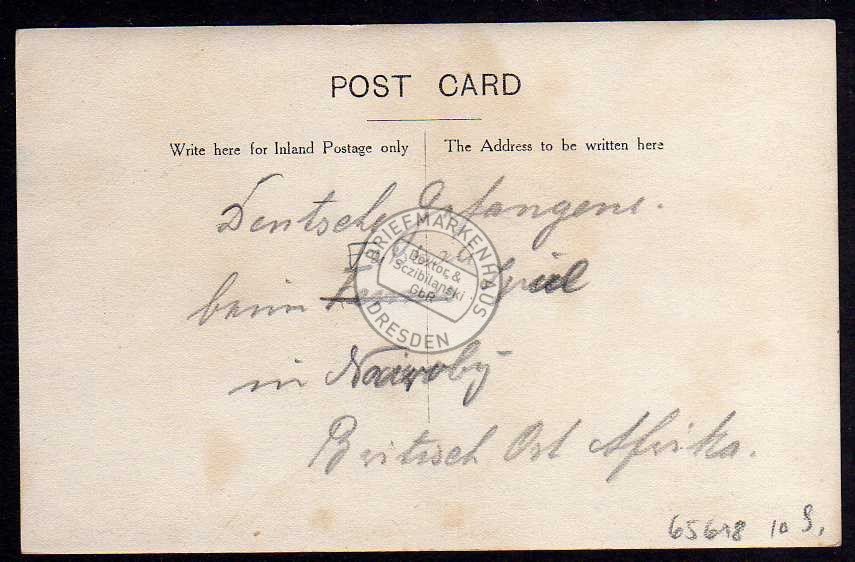 POST CARD
Write here for Inland Postage only
The Address to be written here
Deutsche Gefangene.
beim Spiel
in Nairoby
Britisch Ost Afrika.
65618 10
BRIEFMARKENHAUS
Doxtor &
Sczibilanski
GbR
DRESDEN